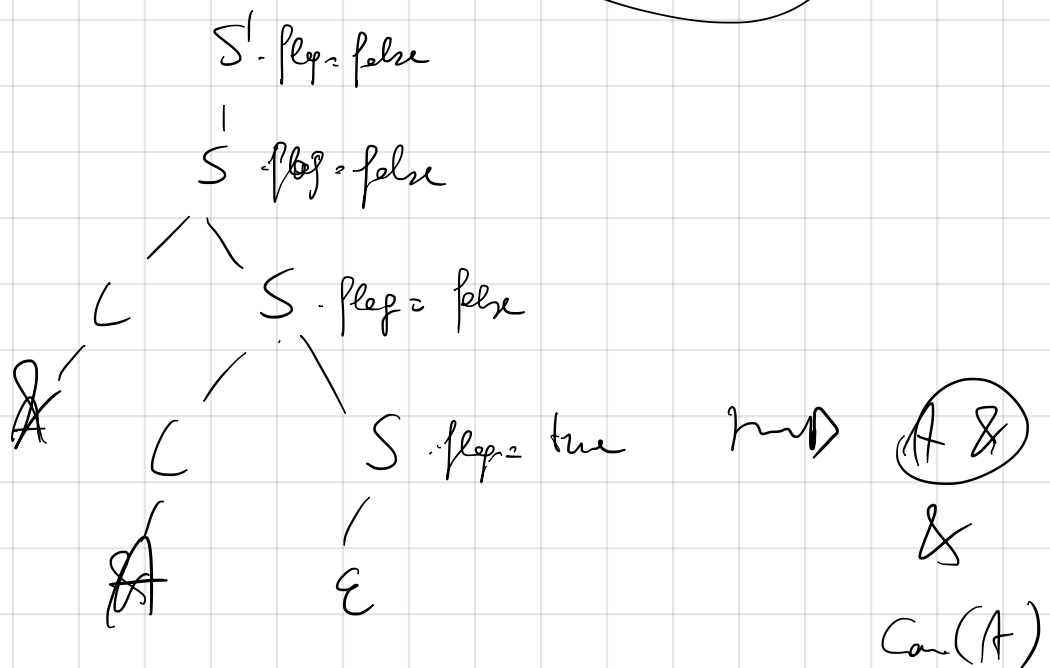 S'.flag = false
S .flag = false
C S .flag = false
C S .flag = true A &
A ε &
Can(A)